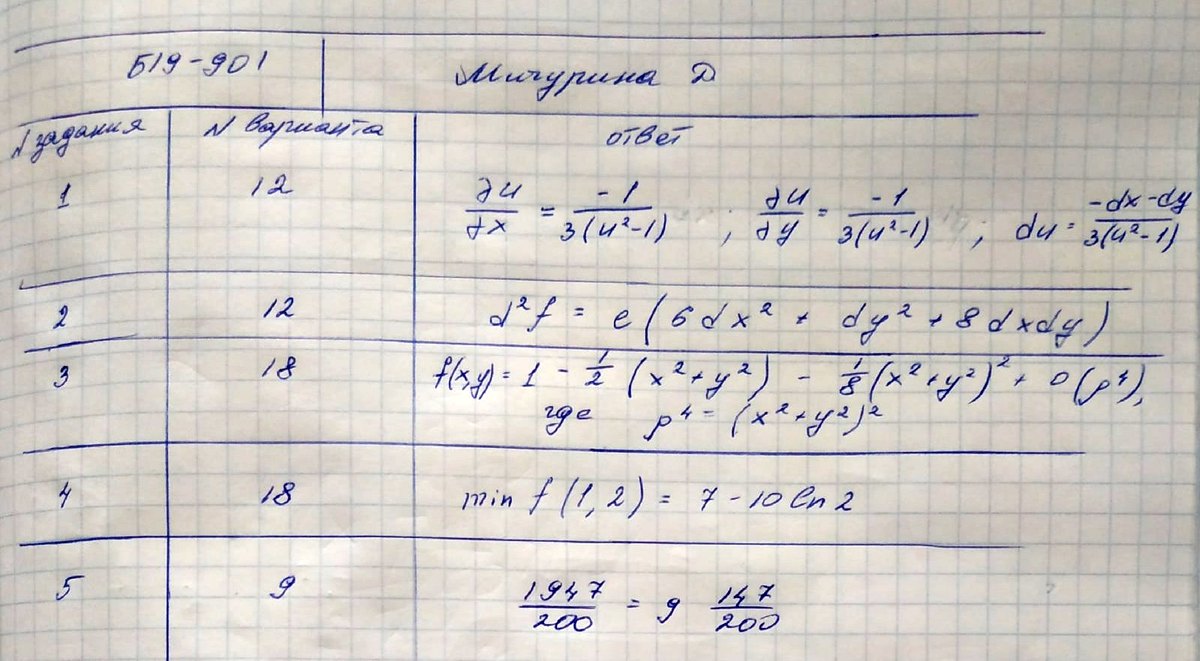 Б19-901 Мичурина Д
N задания N варианта ответ
1 12 ∂u/∂x = -1/3(u²-1) ; ∂u/∂y = -1/3(u²-1) ; du = -dx-dy/3(u²-1)
2 12 d²f = e(6dx² + dy² + 8dxdy)
3 18 f(x,y) = 1 - 1/2 (x²+y²) - 1/8 (x²+y²)² + o(ρ⁴),
где ρ⁴ = (x²+y²)²
4 18 min f(1,2) = 7-10 ln2
5 9 1947/200 = 9 147/200